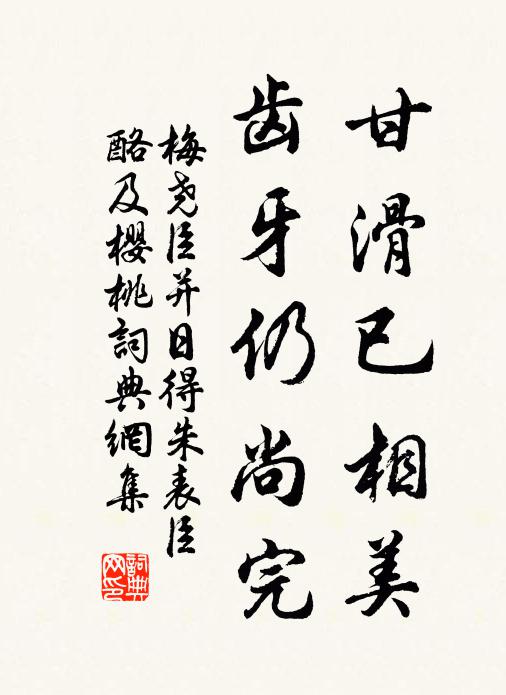 甘滑已相美
齿牙仍尚完
梅尧臣并日得朱表臣
酪及櫻桃詞典網集
詞典网印